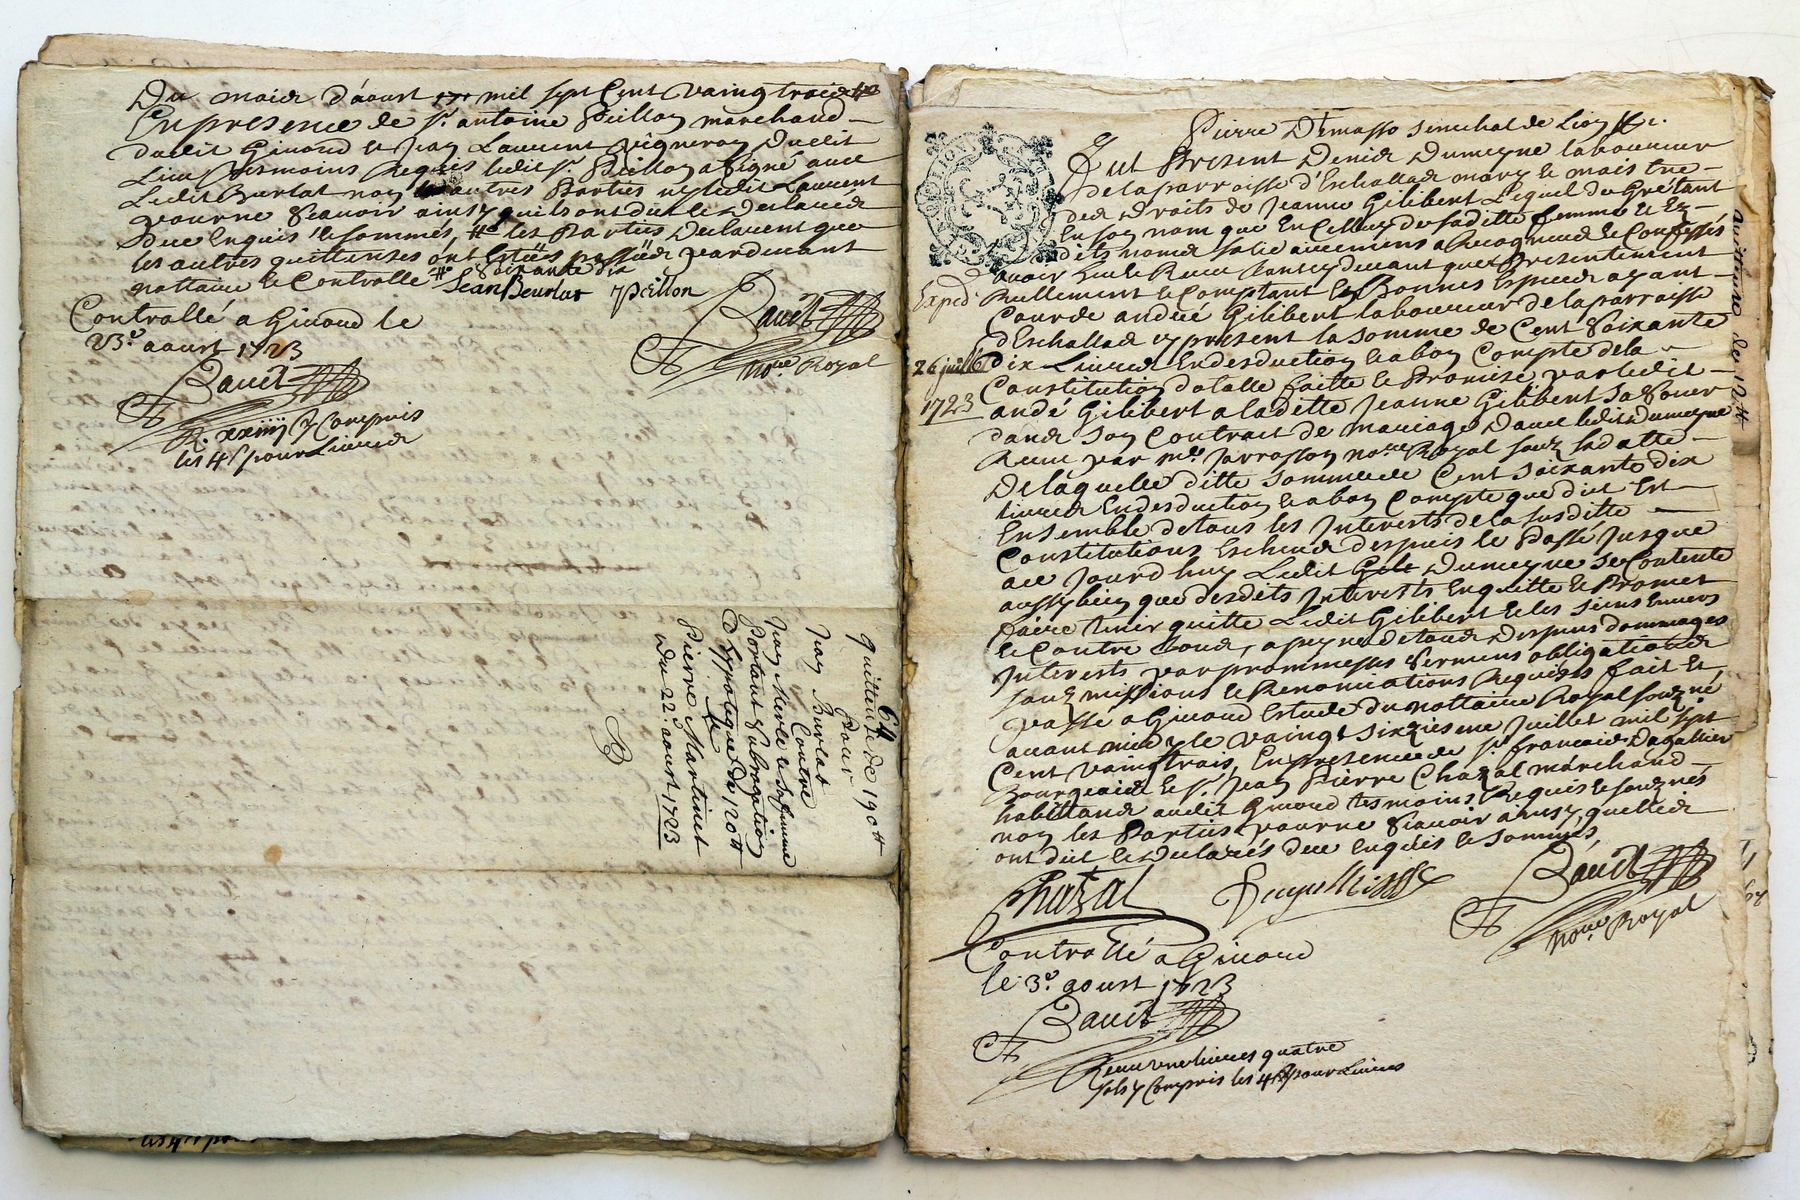 Du mois d'aoust mil sept Cent vaing trois
En presence de Sr. antoine Peillon marchand
dudit Givord et Jean Laurent vigneron dudit
Lieu tesmoins Requis ledit Sr. Peillon a signé avec
Ledit Burlat non les autres Parties ny ledit Laurent
pour ne scavoir ainsy quils ont dit et declaré
deu Enquis et sommes, les Parties declarent que
les autres quittenses ont Estées passées pardevant
nottaire et Controllé
Soixante dix
Jean Beurlat JPeillon
Bauet
Nore Royal
Controllé a Givord le
23e. aoust 1723
Bauet
R. xxiiij s y Compris
les 4 s pour Livres
64
quittense de 190 #
Pour
Jean Burlat
Contre
Jean Merle et sa femme
Portant subrogation
D'hypoteque de 120 #
Pierre Martinet
du 22e. aoust 1723
Pierre Demasso senechal de Lion &c.
Fut Present Denis Dumeyne laboureur
de la parroisse d'Eschallas mary et maistre
des droits de Jeanne Gilibert Lequel de Gré tant
En son nom que En Celluy de saditte femme et Es
dits noms solidairement a Recogneu et Confessé
avoir heu et Receu tant cy devant que presentement
Reellement et Comptant En Bonnes Especes ayant
Cours de andré Gilibert laboureur de la parroisse
d'Eschallas cy present la somme de Cent soixante
dix Livres En desduction et a bon Compte de la
Constitution dotalle faitte et Promise par ledit
andé Gilibert a laditte Jeanne Gilibert sa sœur
dans son Contract de mariage avec ledit Dumeyne
Receu par me. Jarrosson nore Royal souz sa datte
De laquelle ditte somme de Cent soixante dix
livres En desduction et a bon Compte que dict Est
Ensemble de tous les Interests de la susditte
Constitutions Escheus despuis le Passé Jusque
a ce Jourd'huy Ledit Gili Dumeyne se Contente
aussy bien que desdits Interests En quitte et Promet
faire tenir quitte Ledit Gilibert et les siens Envers
et Contre tous, a peyne de tous despens dommages
Interests par prommesses serments obligations
souzmissions et Renonciations Requises fait et
passé a Givord Estude du nottaire Royal souzné
avant midy le vaingt sixziesme Juillet mil sept
Cent vaing trois, En presence de Sr. francois Dagallier
Bourgeois et Sr. Jean Pierre Chazal marchand
habittans audit Givord tesmoins Requis et souznés
non les Parties pour ne scavoir ainsy quelles
ont dict et declarés deu Enquis et sommés,
Exped.
26 juillet
1723
quittense de 12 #
Chazal
Bauet
Nore Royal
Controllé a Givord
le 3e. aoust 1723
Bauet
Receu une livres quatre
sols y Compris les 4 s pour Livres